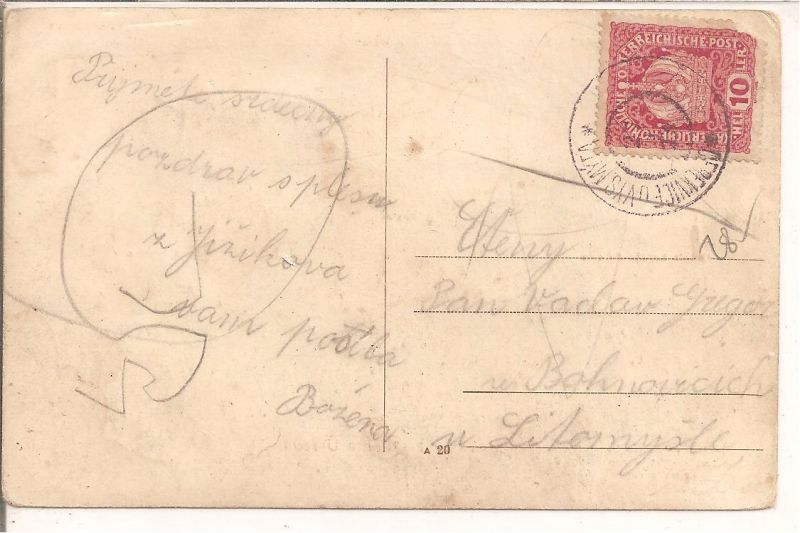 Přijměte srdečný
pozdrav s plesu
z Jiříkova
vám posílá
Božena
ÖSTERREICHISCHE·POST
10
HELLER
U VYS. MÝTA
28
Ctěný
Pan Vaclav Gregor
v Bohňovicích
u Litomyšle
A 20